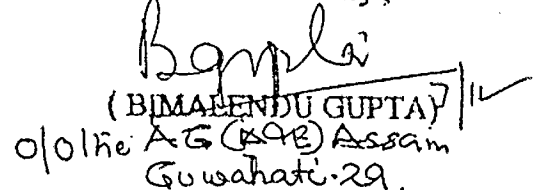 Bgupta
( BIMALENDU GUPTA)
O/O the A.G (A&E) Assam
Guwahati-29.